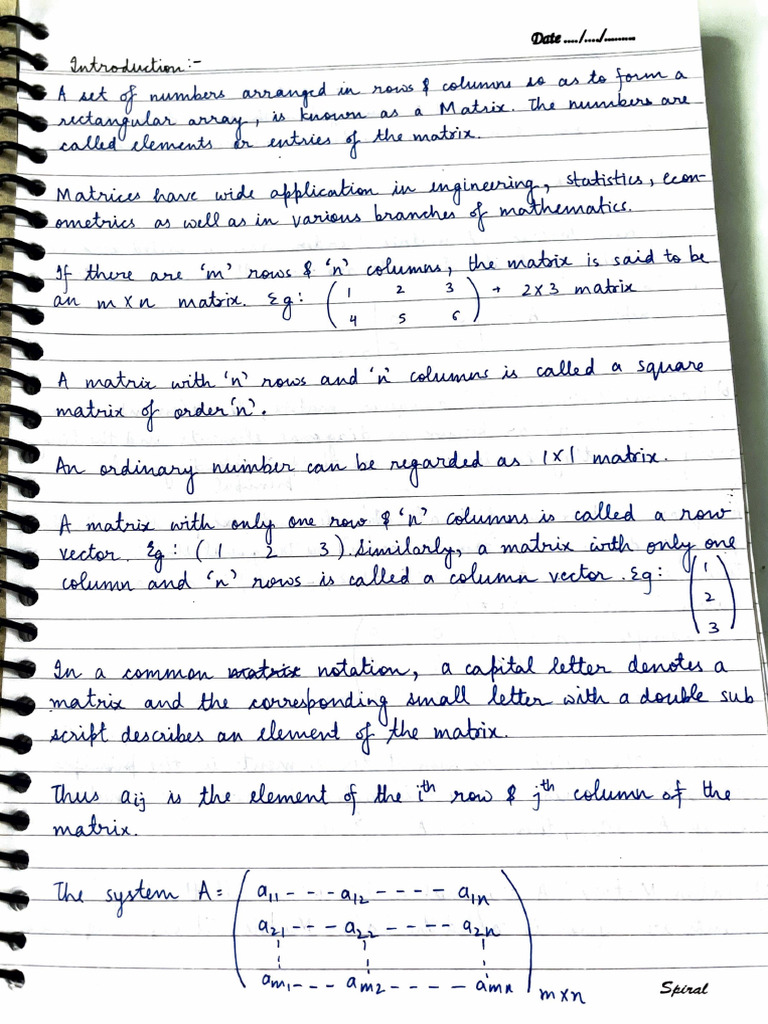 Date ..../..../.........
Introduction:-
A set of numbers arranged in rows & columns so as to form a
rectangular array, is known as a Matrix. The numbers are
called elements or entries of the matrix.
Matrices have wide application in engineering, statistics, econ-
ometrics as well as in various branches of mathematics.
If there are 'm' rows & 'n' columns, the matrix is said to be
an m×n matrix. Eg: (1 2 3) → 2×3 matrix
4 5 6
A matrix with 'n' rows and 'n' columns is called a square
matrix of order 'n'.
An ordinary number can be regarded as 1×1 matrix.
A matrix with only one row & 'n' columns is called a row
vector. Eg: ( 1 2 3 ). Similarly, a matrix with only one
column and 'n' rows is called a column vector. Eg: (1
2
3)
In a common matrix notation, a capital letter denotes a
matrix and the corresponding small letter with a double sub
script describes an element of the matrix.
Thus aij is the element of the ith row & jth column of the
matrix.
The system A = ( a11 - - - a12 - - - - a1n
a21 - - - a22 - - - - a2n
am1 - - - am2 - - - - amn ) m×n
Spiral